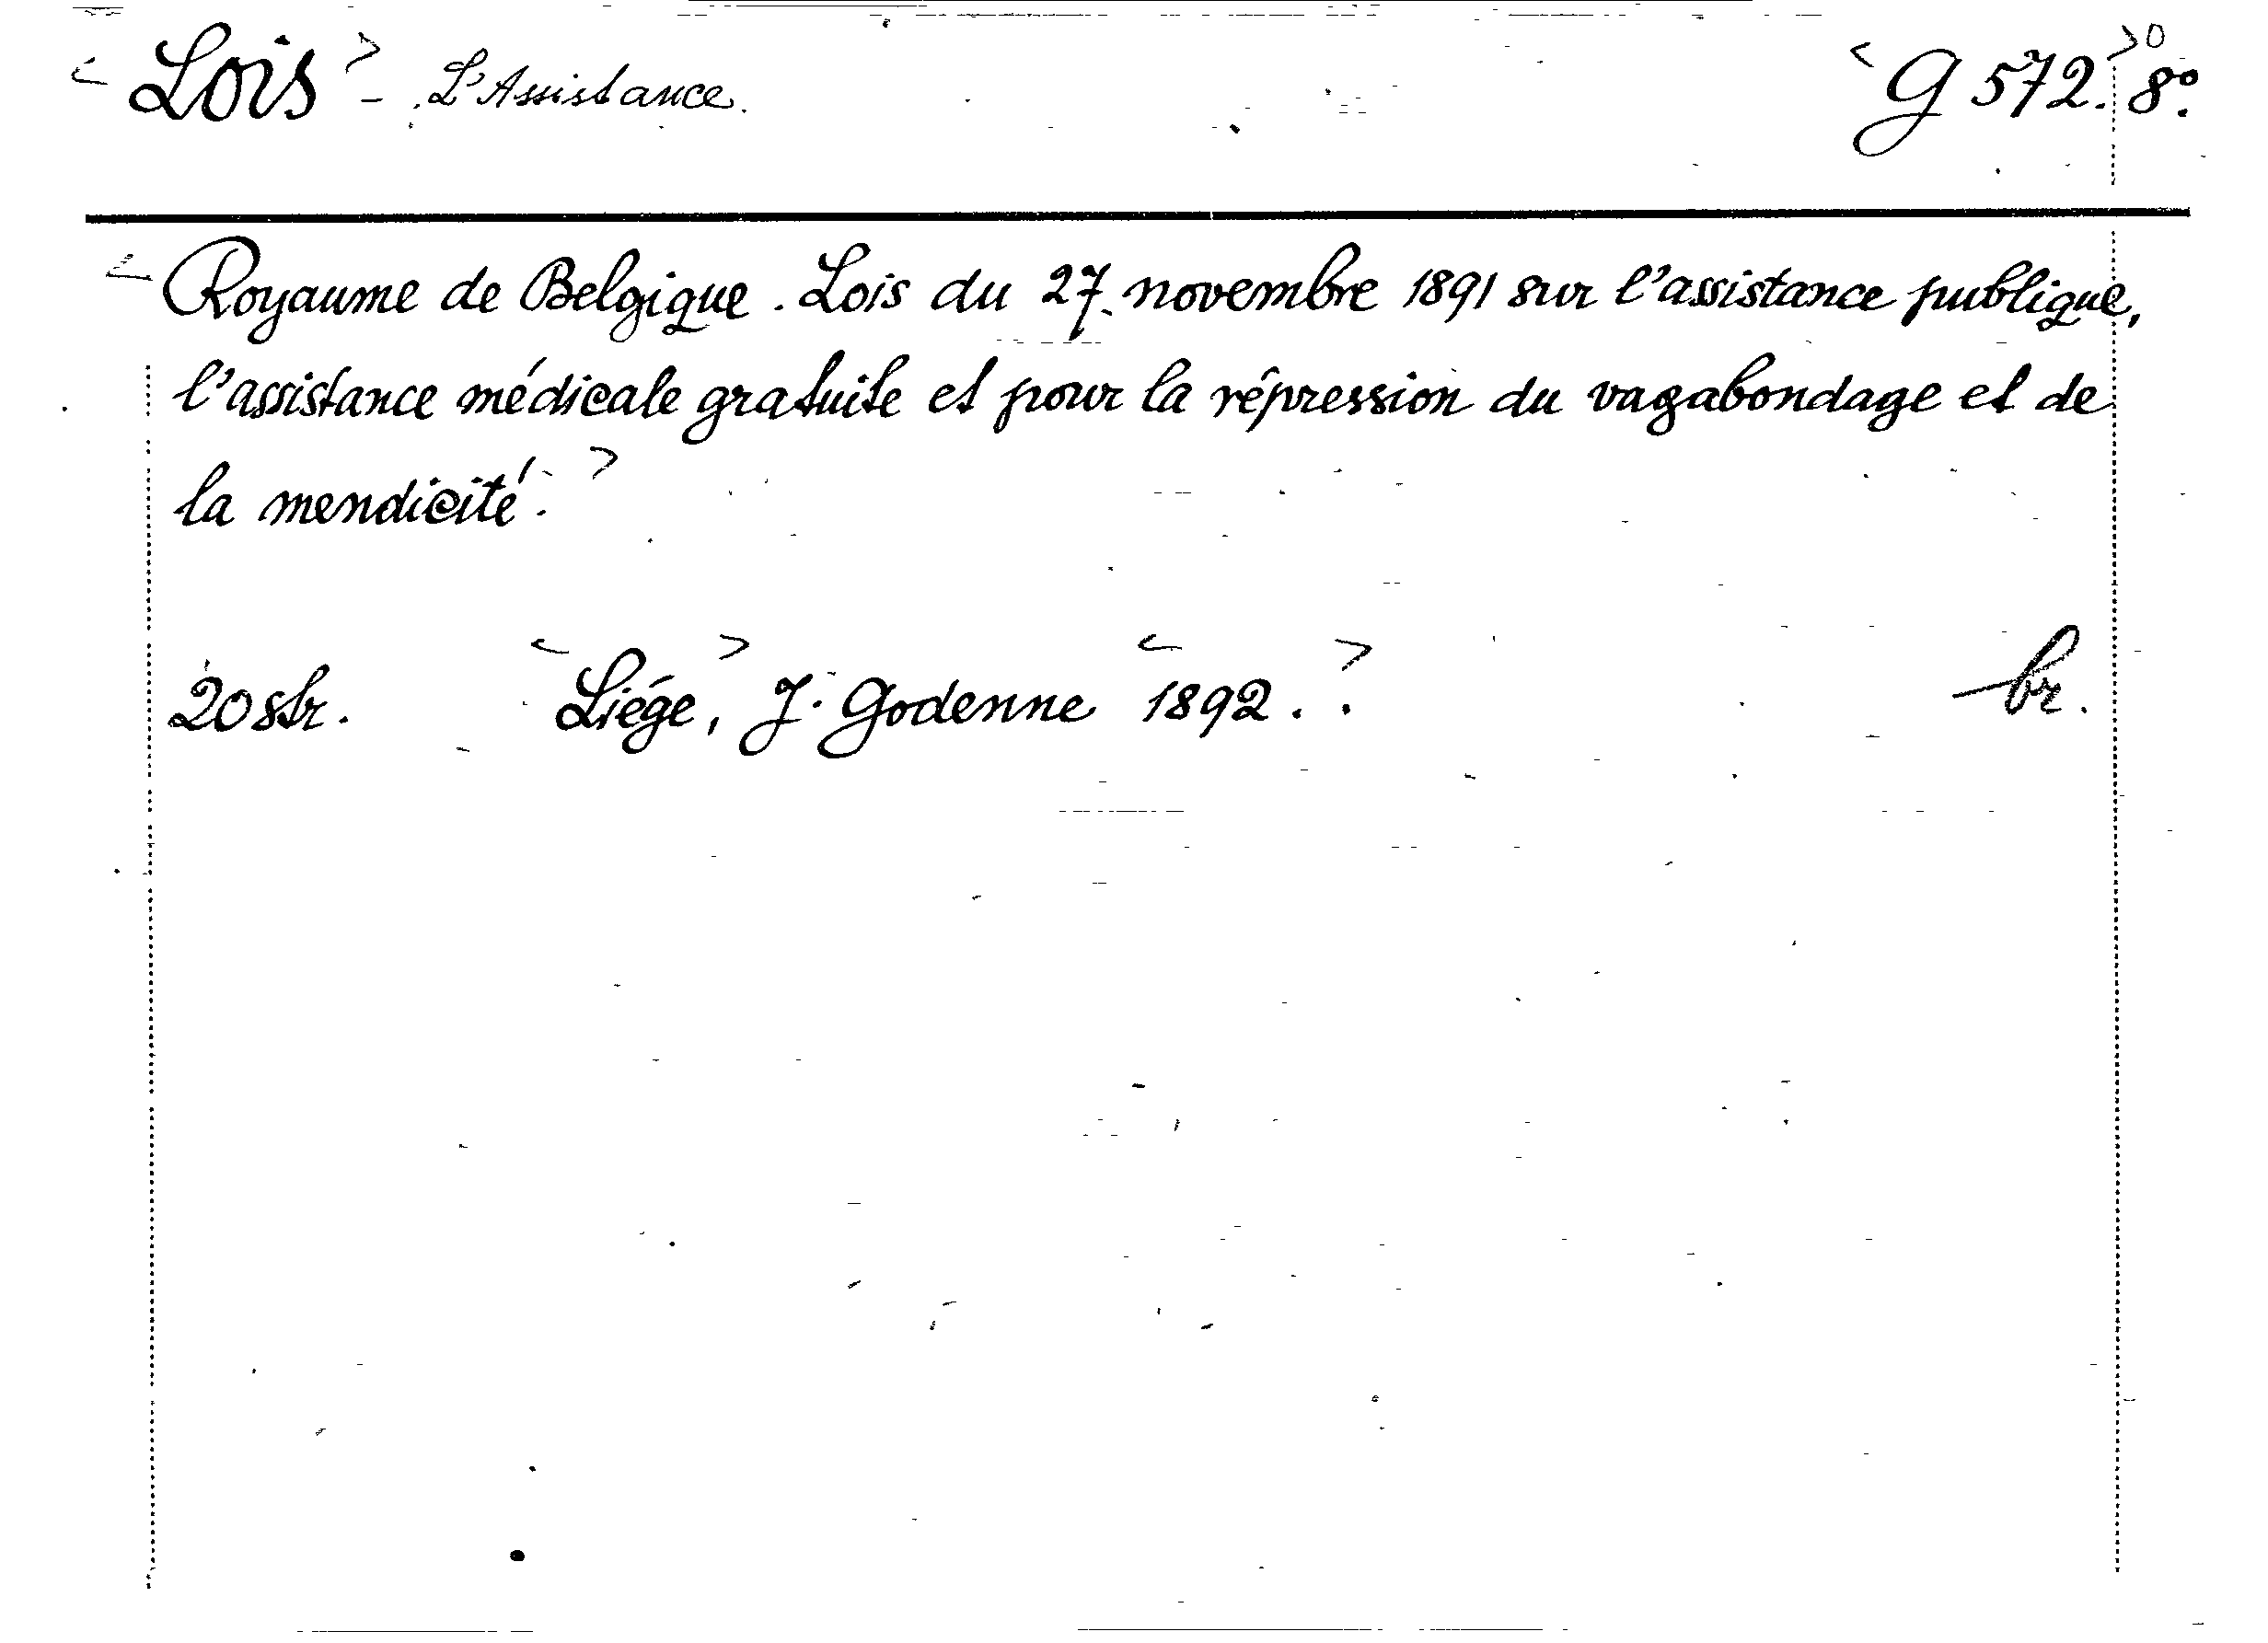 Lois - L'Assistance. G 572. 8°.
Royaume de Belgique. Lois du 27 novembre 1891 sur l'assistance publique,
l'assistance médicale gratuite et pour la répression du vagabondage et de
la mendicité.
20 str. Liége, J. Godenne 1892. br.